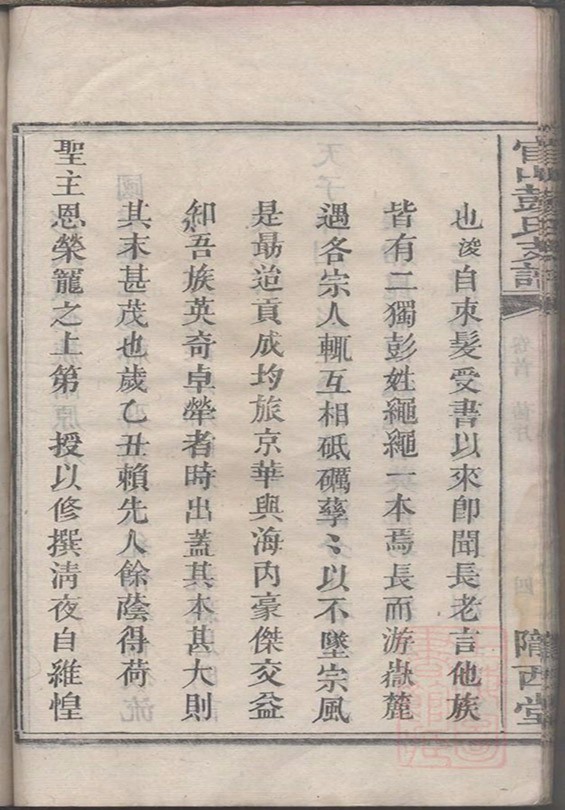 官山彭氏支譜
卷首
四
隴西堂
也浚自束髮受書以來卽聞長老言他族
皆有二獨彭姓繩繩一本焉長而游嶽麓
遇各宗人輒互相砥礪孳〻以不墜宗風
是勗迨貢成均旅京華與海內豪傑交益
知吾族英奇卓犖者時出蓋其本甚大則
其末甚茂也歲乙丑賴先人餘蔭得荷
聖主恩榮寵之上第授以修撰淸夜自維惶